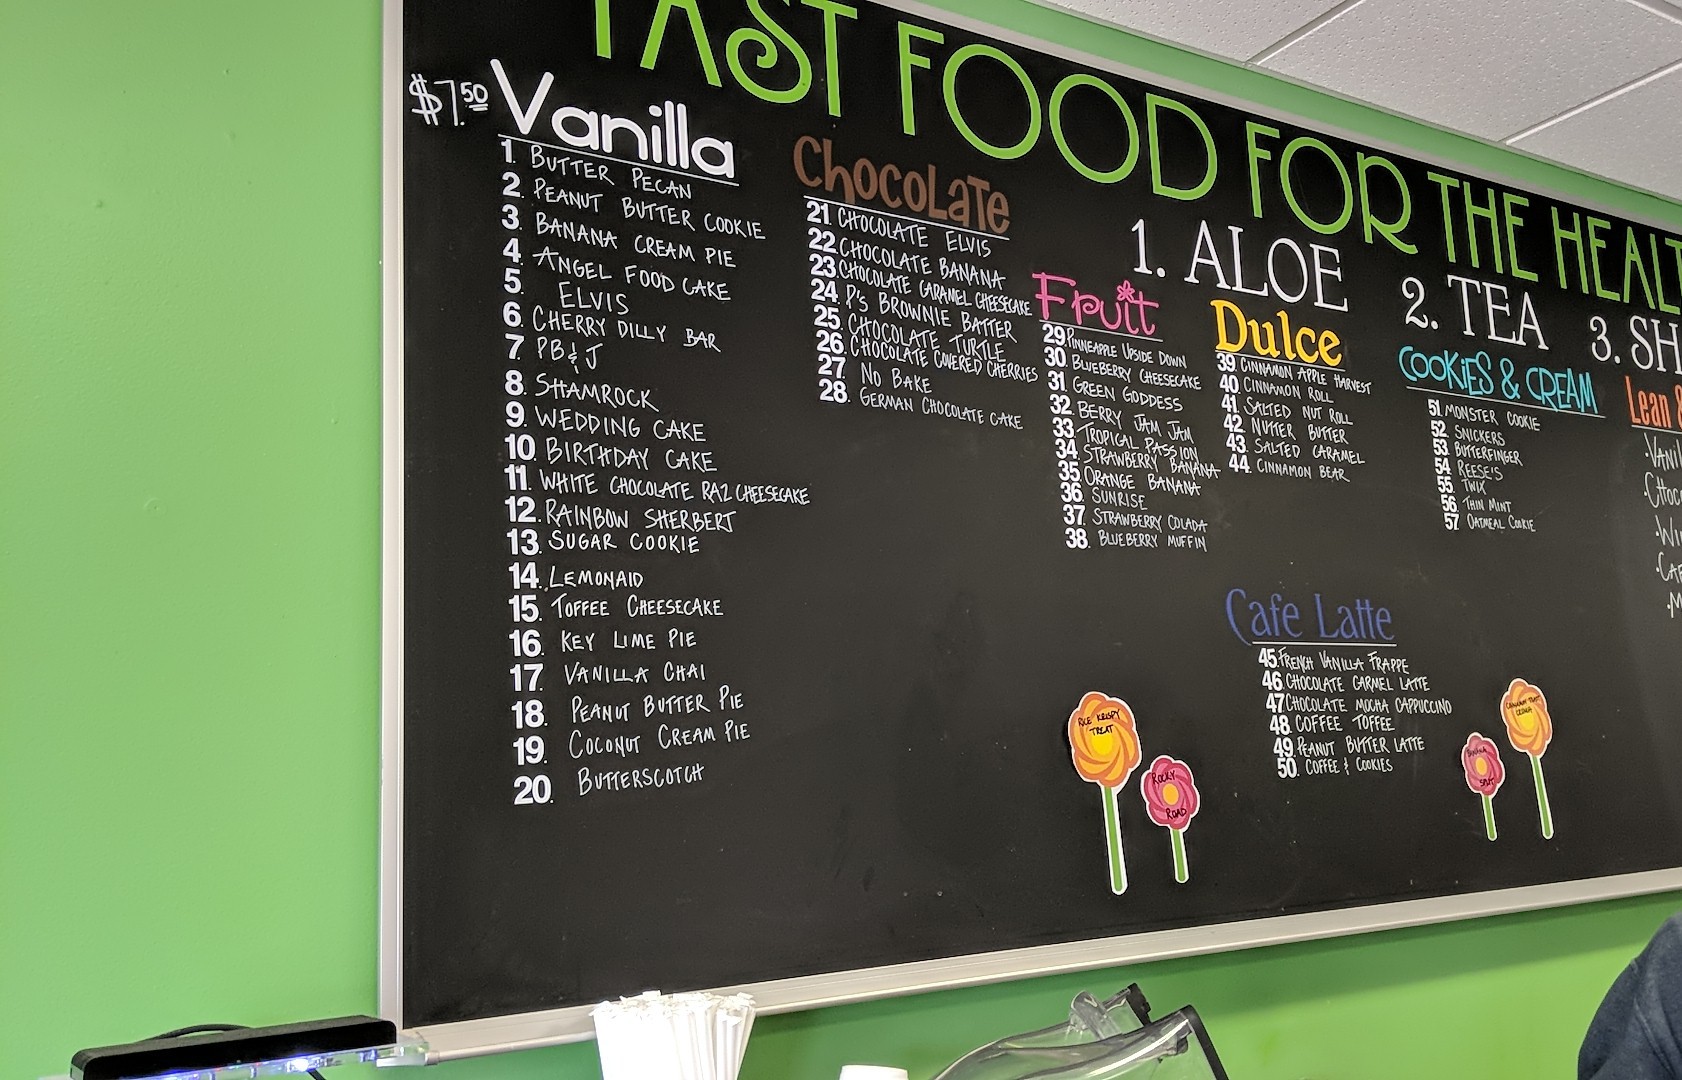 FAST FOOD FOR THE HEALT
1. ALOE
2. TEA
3. SH
$7.50
Vanilla
1. BUTTER PECAN
2. PEANUT BUTTER COOKIE
3. BANANA CREAM PIE
4. ANGEL FOOD CAKE
5. ELVIS
6. CHERRY DILLY BAR
7. PB & J
8. SHAMROCK
9. WEDDING CAKE
10. BIRTHDAY CAKE
11. WHITE CHOCOLATE RAZ CHEESECAKE
12. RAINBOW SHERBERT
13. SUGAR COOKIE
14. LEMONAID
15. TOFFEE CHEESECAKE
16. KEY LIME PIE
17. VANILLA CHAI
18. PEANUT BUTTER PIE
19. COCONUT CREAM PIE
20. BUTTERSCOTCH
Chocolate
21 CHOCOLATE ELVIS
22. CHOCOLATE BANANA
23. CHOCOLATE CARAMEL CHEESECAKE
24. P'S BROWNIE BATTER
25. CHOCOLATE TURTLE
26. CHOCOLATE COVERED CHERRIES
27. NO BAKE
28. GERMAN CHOCOLATE CAKE
Fruit
29. PINNEAPPLE UPSIDE DOWN
30. BLUEBERRY CHEESECAKE
31. GREEN GODDESS
32. BERRY JAM JAM
33. TROPICAL PASSION
34. STRAWBERRY BANANA
35 ORANGE BANANA
36. SUNRISE
37. STRAWBERRY COLADA
38. BLUEBERRY MUFFIN
Dulce
39. CINNAMON APPLE HARVEST
40. CINNAMON ROLL
41. SALTED NUT ROLL
42. NUTTER BUTTER
43. SALTED CARAMEL
44. CINNAMON BEAR
Cafe Latte
45. FRENCH VANILLA FRAPPE
46. CHOCOLATE CARMEL LATTE
47 CHOCOLATE MOCHA CAPPUCCINO
48. COFFEE TOFFEE
49. PEANUT BUTTER LATTE
50. COFFEE & COOKIES
COOKIES & CREAM
51. MONSTER COOKIE
52. SNICKERS
53. BUTTERFINGER
54. REESE'S
55. TWIX
56. THIN MINT
57 OATMEAL COOKIE
Lean &
·VANIL
·CHOC
RICE KRISPY
TREAT
ROCKY
ROAD
BANANA
SPLIT